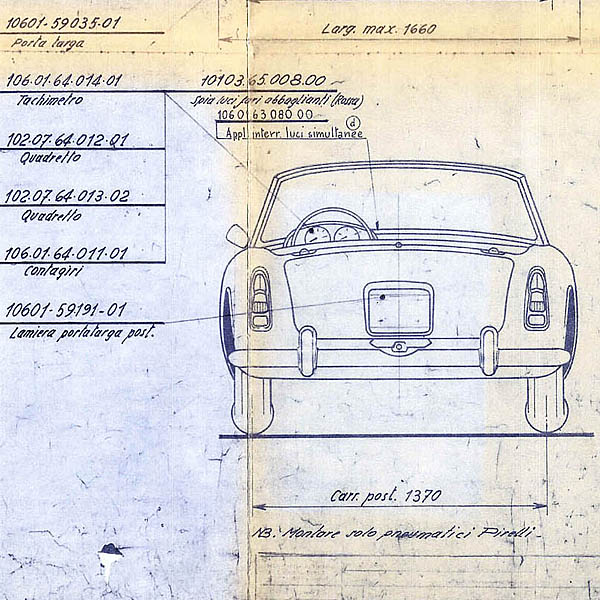 10601-59035-01
Porta targa
Larg. max. 1660
106.01.64.014.01
Tachimetro
10103.65.008.00
Spia luci fari abbaglianti (Rossa)
106 01 63 080 00
Appl. interr. luci simultanee
d
102.07.64.012.01
Quadretto
102.07.64.013.02
Quadretto
106.01.64.011.01
Contagiri
10601-59191-01
Lamiera portatarga post.
Carr. post. 1370
NB. Montare solo pneumatici Pirelli-